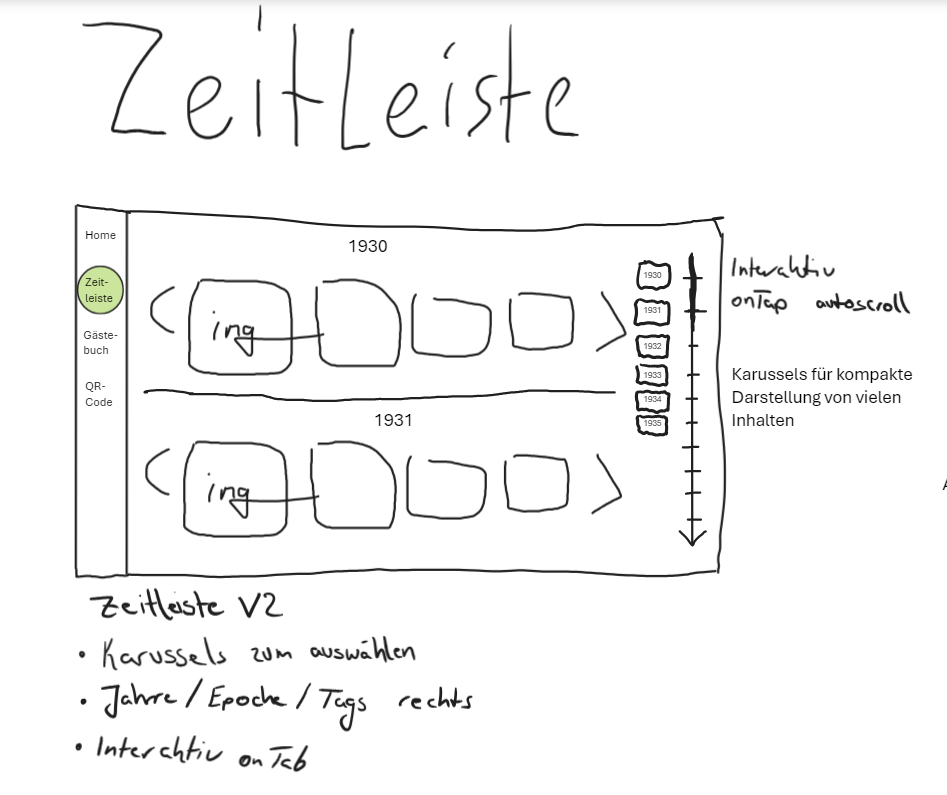 Zeitleiste
Home
Zeit-
leiste
Gäste-
buch
QR-
Code
1930
img
1931
img
1930
1931
1932
1933
1934
1935
Interaktiv
onTap autoscroll
Karussels für kompakte
Darstellung von vielen
Inhalten
A
Zeitleiste V2
• Karussels zum auswählen
• Jahre / Epoche / Tags rechts
• Interaktiv onTab